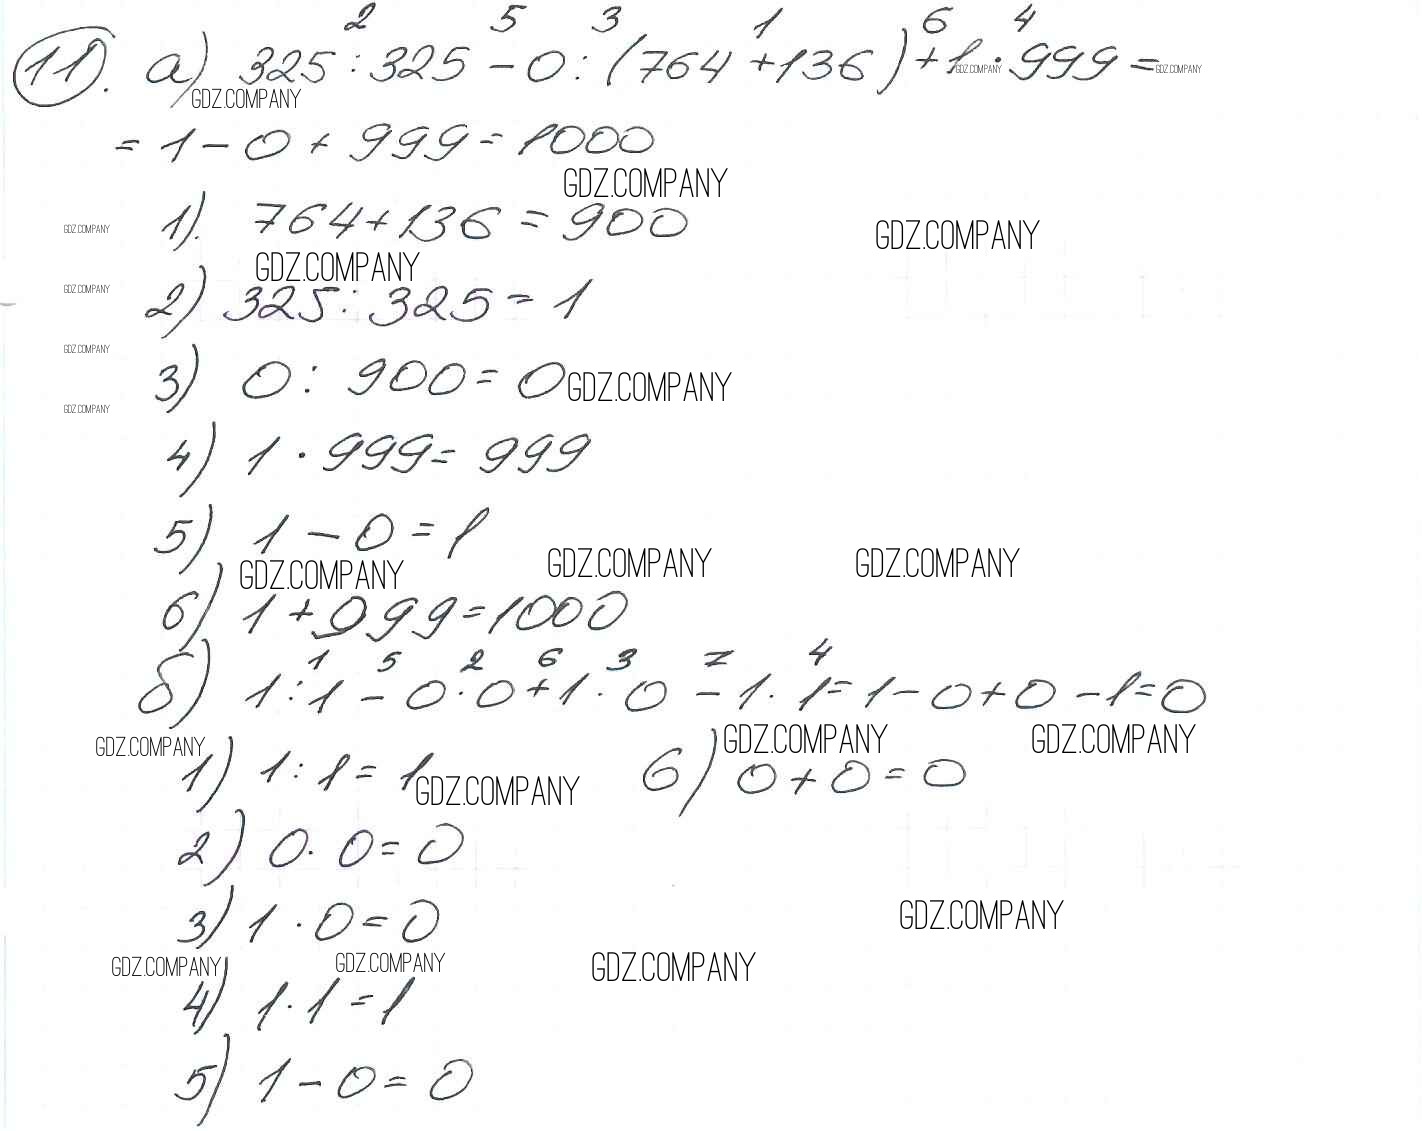 2 5 3 1 6 4
11. а) 325 : 325 - 0 : (764 + 136) + 1 · 999 =
GDZ.COMPANY GDZ.COMPANY GDZ.COMPANY
= 1 - 0 + 999 = 1000
GDZ.COMPANY
1). 764 + 136 = 900
GDZ.COMPANY GDZ.COMPANY
GDZ.COMPANY
2) 325 : 325 = 1
GDZ.COMPANY
GDZ.COMPANY
3) 0 : 900 = 0 GDZ.COMPANY
GDZ.COMPANY
4) 1 · 999 = 999
5) 1 - 0 = 1
GDZ.COMPANY GDZ.COMPANY GDZ.COMPANY
6) 1 + 999 = 1000
1 5 2 6 3 7 4
б) 1 : 1 - 0 · 0 + 1 · 0 - 1 · 1 = 1 - 0 + 0 - 1 = 0
GDZ.COMPANY GDZ.COMPANY GDZ.COMPANY
1) 1 : 1 = 1 GDZ.COMPANY 6) 0 + 0 = 0
2) 0 · 0 = 0
3) 1 · 0 = 0
GDZ.COMPANY
GDZ.COMPANY GDZ.COMPANY GDZ.COMPANY
4) 1 · 1 = 1
5) 1 - 0 = 0